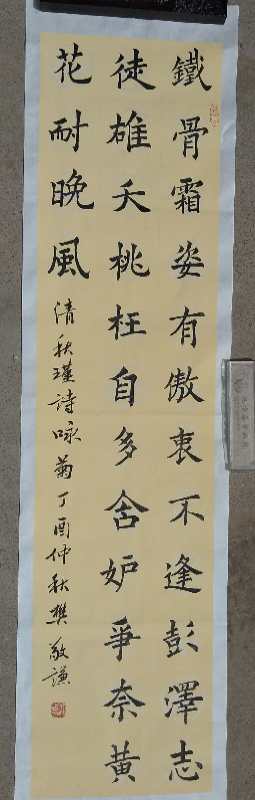 鐵骨霜姿有傲衷不逢彭澤志
徒雄夭桃枉自多舍妒爭奈黄
花耐晩風
清秋瑾詩咏菊丁酉仲秋樊敬謙